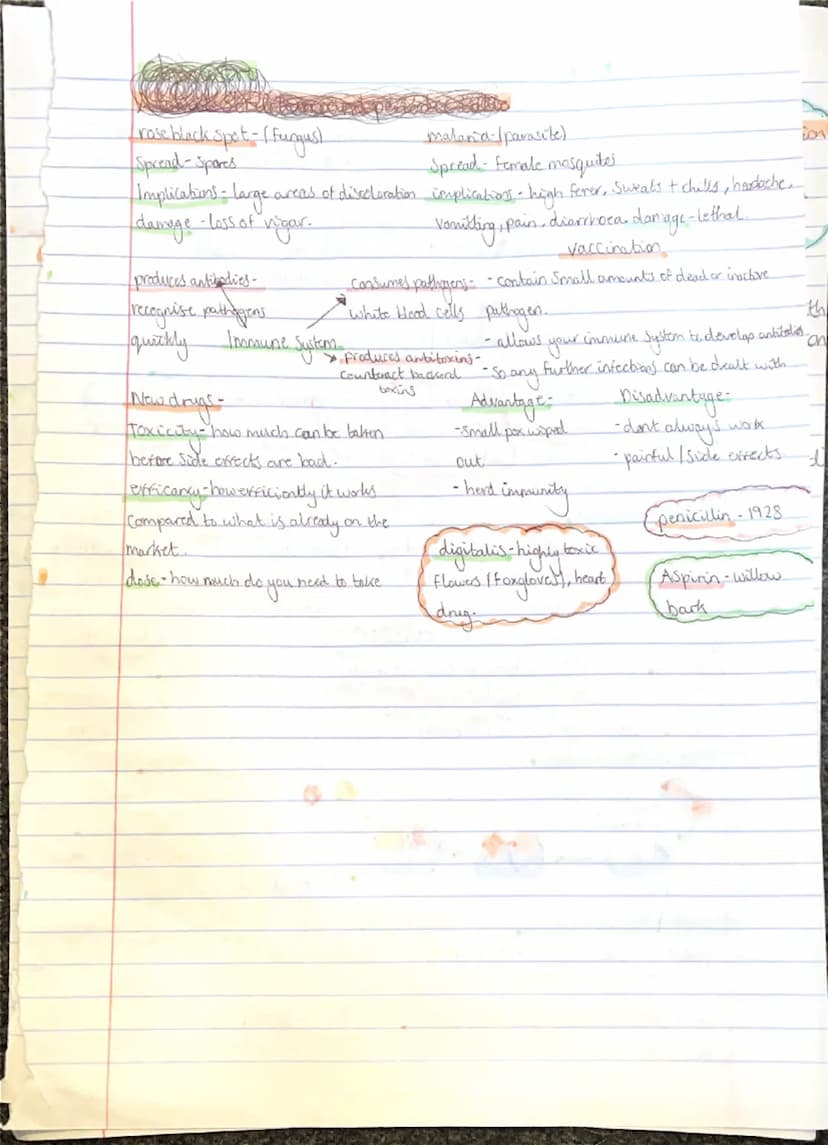 rose black spot - (Fungus)
Spread - Spores
Implications - large areas of discoloration
damage - loss of vigar.
malaria - (parasite)
Spread - Female mosquites
implications - high fever, Sweats + chills, headache,
vomitting, pain, diarrhoea. damage - lethal.
produces antibodies -
recognise pathogens
quickly
Immune System
consumes pathogens -
white blood cells
produces antitoxins -
counteract
toxins
vaccination
- contain small amounts of dead or inactive
pathogen.
- allows your immune system to develop antibodies
- so any further infections can be dealt with
New drugs -
Toxicity - how much can be taken
before side effects are bad.
efficancy - how efficiently it works
compared to what is already on the
market.
dose - how much do you need to take
Advantage -
- small pox wiped
out
- herd immunity
Disadvantage -
- dont always work
- painful / side effects
digitalis - highly toxic
Flowers (Foxgloves), heart
drug.
penicillin - 1928
Aspirin - willow
bark
ion
th
on